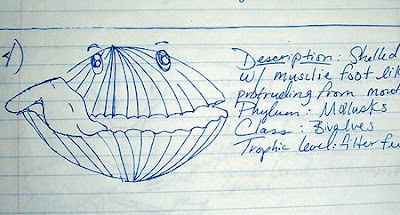 4)
Description: Shelled
w/ musclie foot lik
protruding from mout
Phylum: Mollusks
Class: Bivalves
Trophic level: filter fee